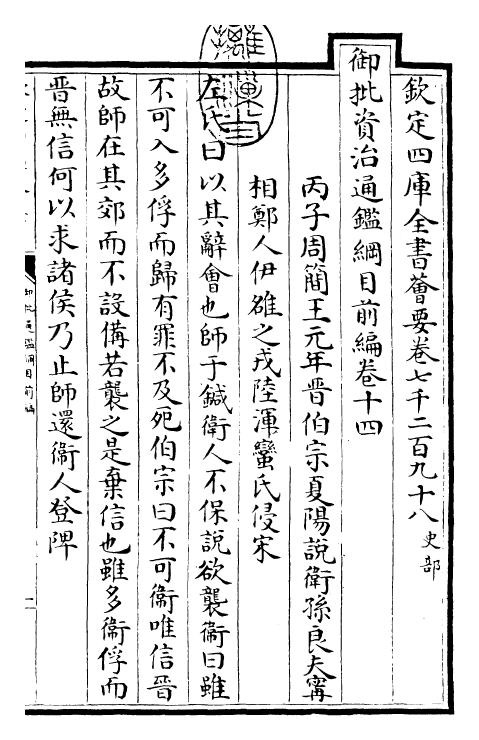 欽定四庫全書薈要卷七千二百九十八 史部
御批資治通鑑綱目前編卷十四
丙子周簡王元年晉伯宗夏陽說衛孫良夫甯
相鄭人伊雒之戎陸渾蠻氏侵宋
左氏曰以其辭會也師于鍼衛人不保說欲襲衛曰雖
不可入多俘而歸有罪不及死伯宗曰不可衛唯信晉
故師在其郊而不設備若襲之是棄信也雖多衛俘而
晉無信何以求諸侯乃止師還衛人登陴